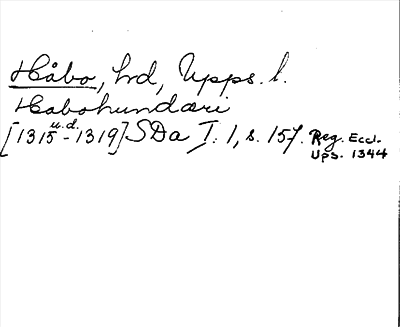 Håbo, hrd, Upps. l.
Habohundæri
[1315 u.d. - 1319] SDa T. 1, s. 157. Reg. Eccl.
Ups. 1344